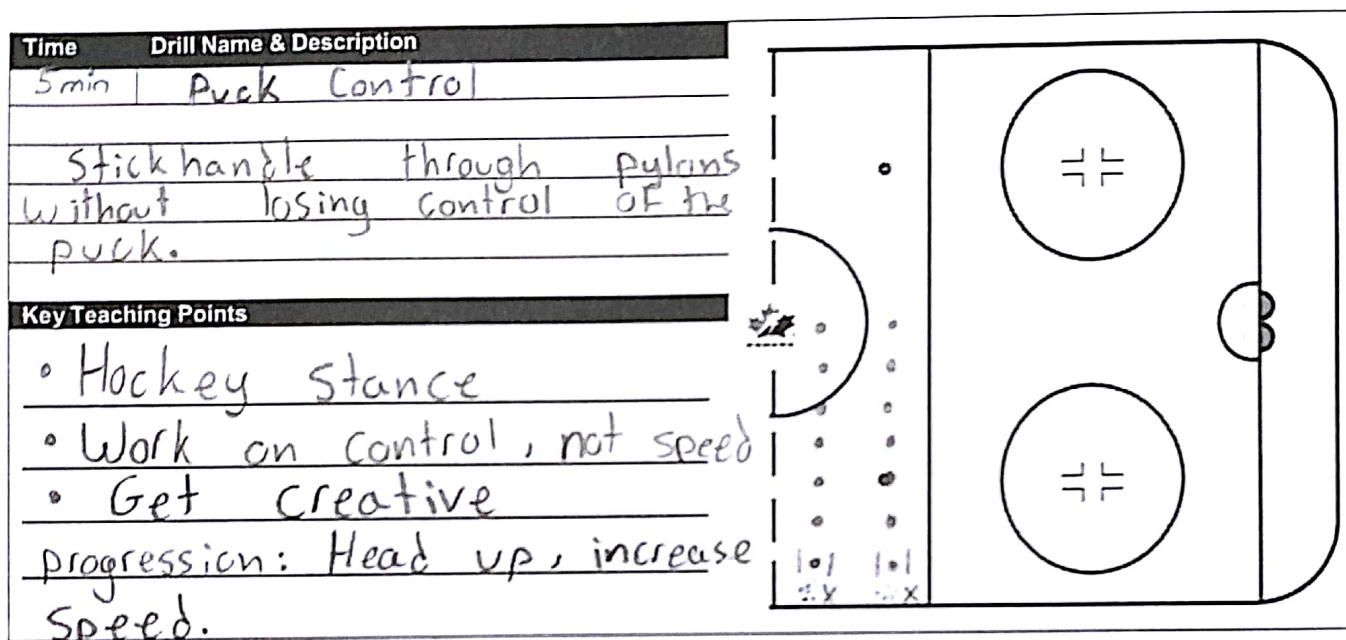 Time Drill Name & Description
5 min Puck Control
Stickhandle through pylons
without losing control of the
puck.
Key Teaching Points
• Hockey Stance
• Work on control, not speed
• Get creative
progression: Head up, increase
speed.
X X